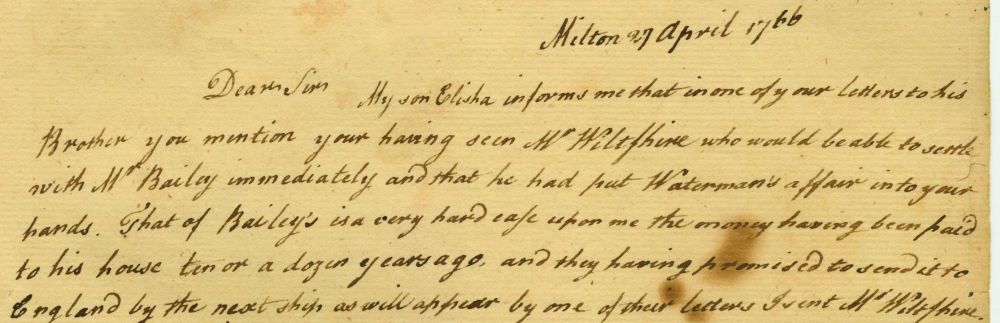 Milton 27 April 1766
Dear Sir My son Elisha informs me that in one of your letters to his
Brother you mention your having seen Mr Wiltshire who would be able to settle
with Mr Bailey immediately and that he had put Waterman's affair into your
hands. That of Bailey's is a very hard case upon me the money having been paid
to his house ten or a dozen years ago, and they having promised to send it to
England by the next ship as will appear by one of their letters I sent Mr Wiltshire.